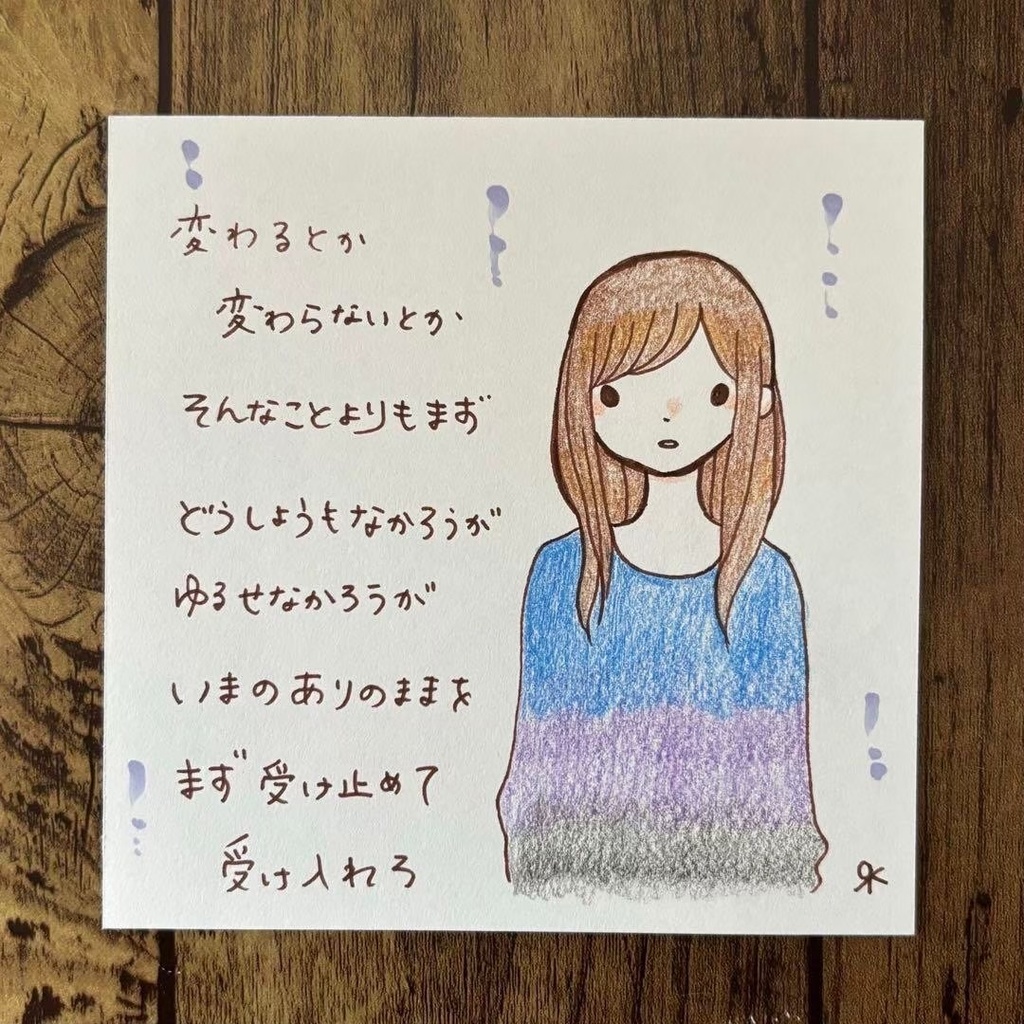 変わるとか
変わらないとか
そんなことよりもまず
どうしようもなかろうが
ゆるせなかろうが
いまのありのままを
まず受け止めて
受け入れろ